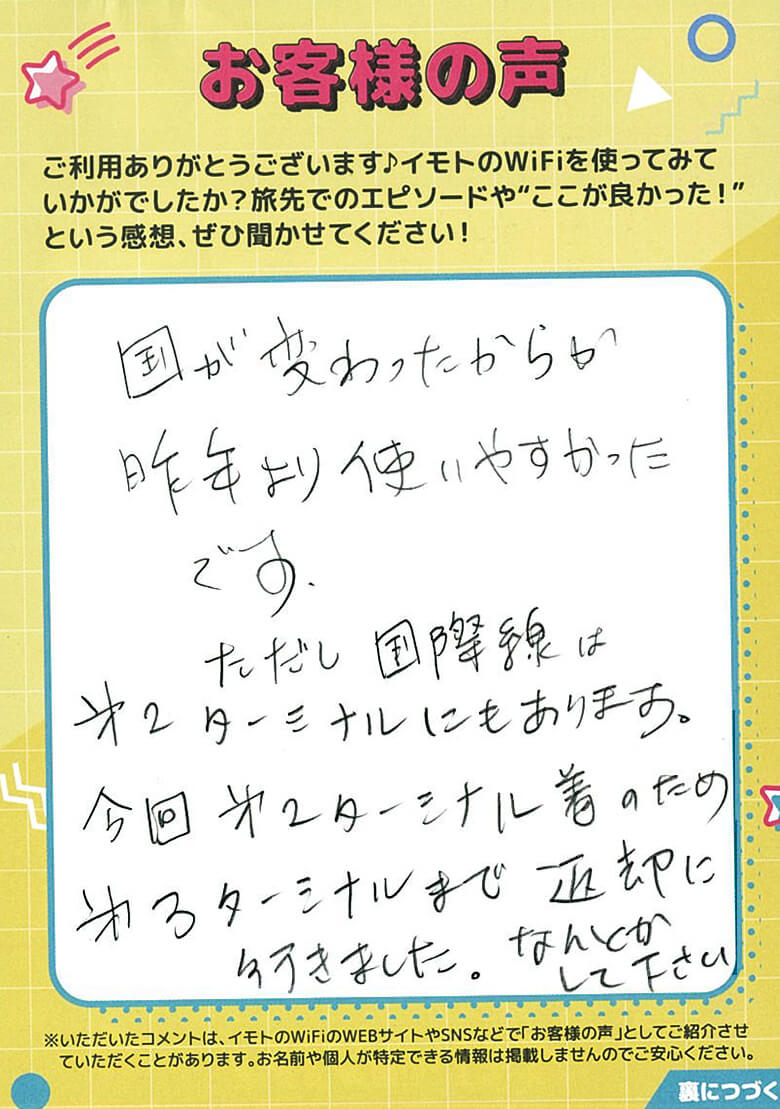 お客様の声
ご利用ありがとうございます♪イモトのWiFiを使ってみて
いかがでしたか？旅先でのエピソードや“ここが良かった！”
という感想、ぜひ聞かせてください！
国が変わったからか
昨年より使いやすかった
です。
ただし国際線は
第2ターミナルにもあります。
今回第2ターミナル着のため
第3ターミナルまで返却に
行きました。なんとか
して下さい
※いただいたコメントは、イモトのWiFiのWEBサイトやSNSなどで「お客様の声」としてご紹介させ
ていただくことがあります。お名前や個人が特定できる情報は掲載しませんのでご安心ください。
裏につづく